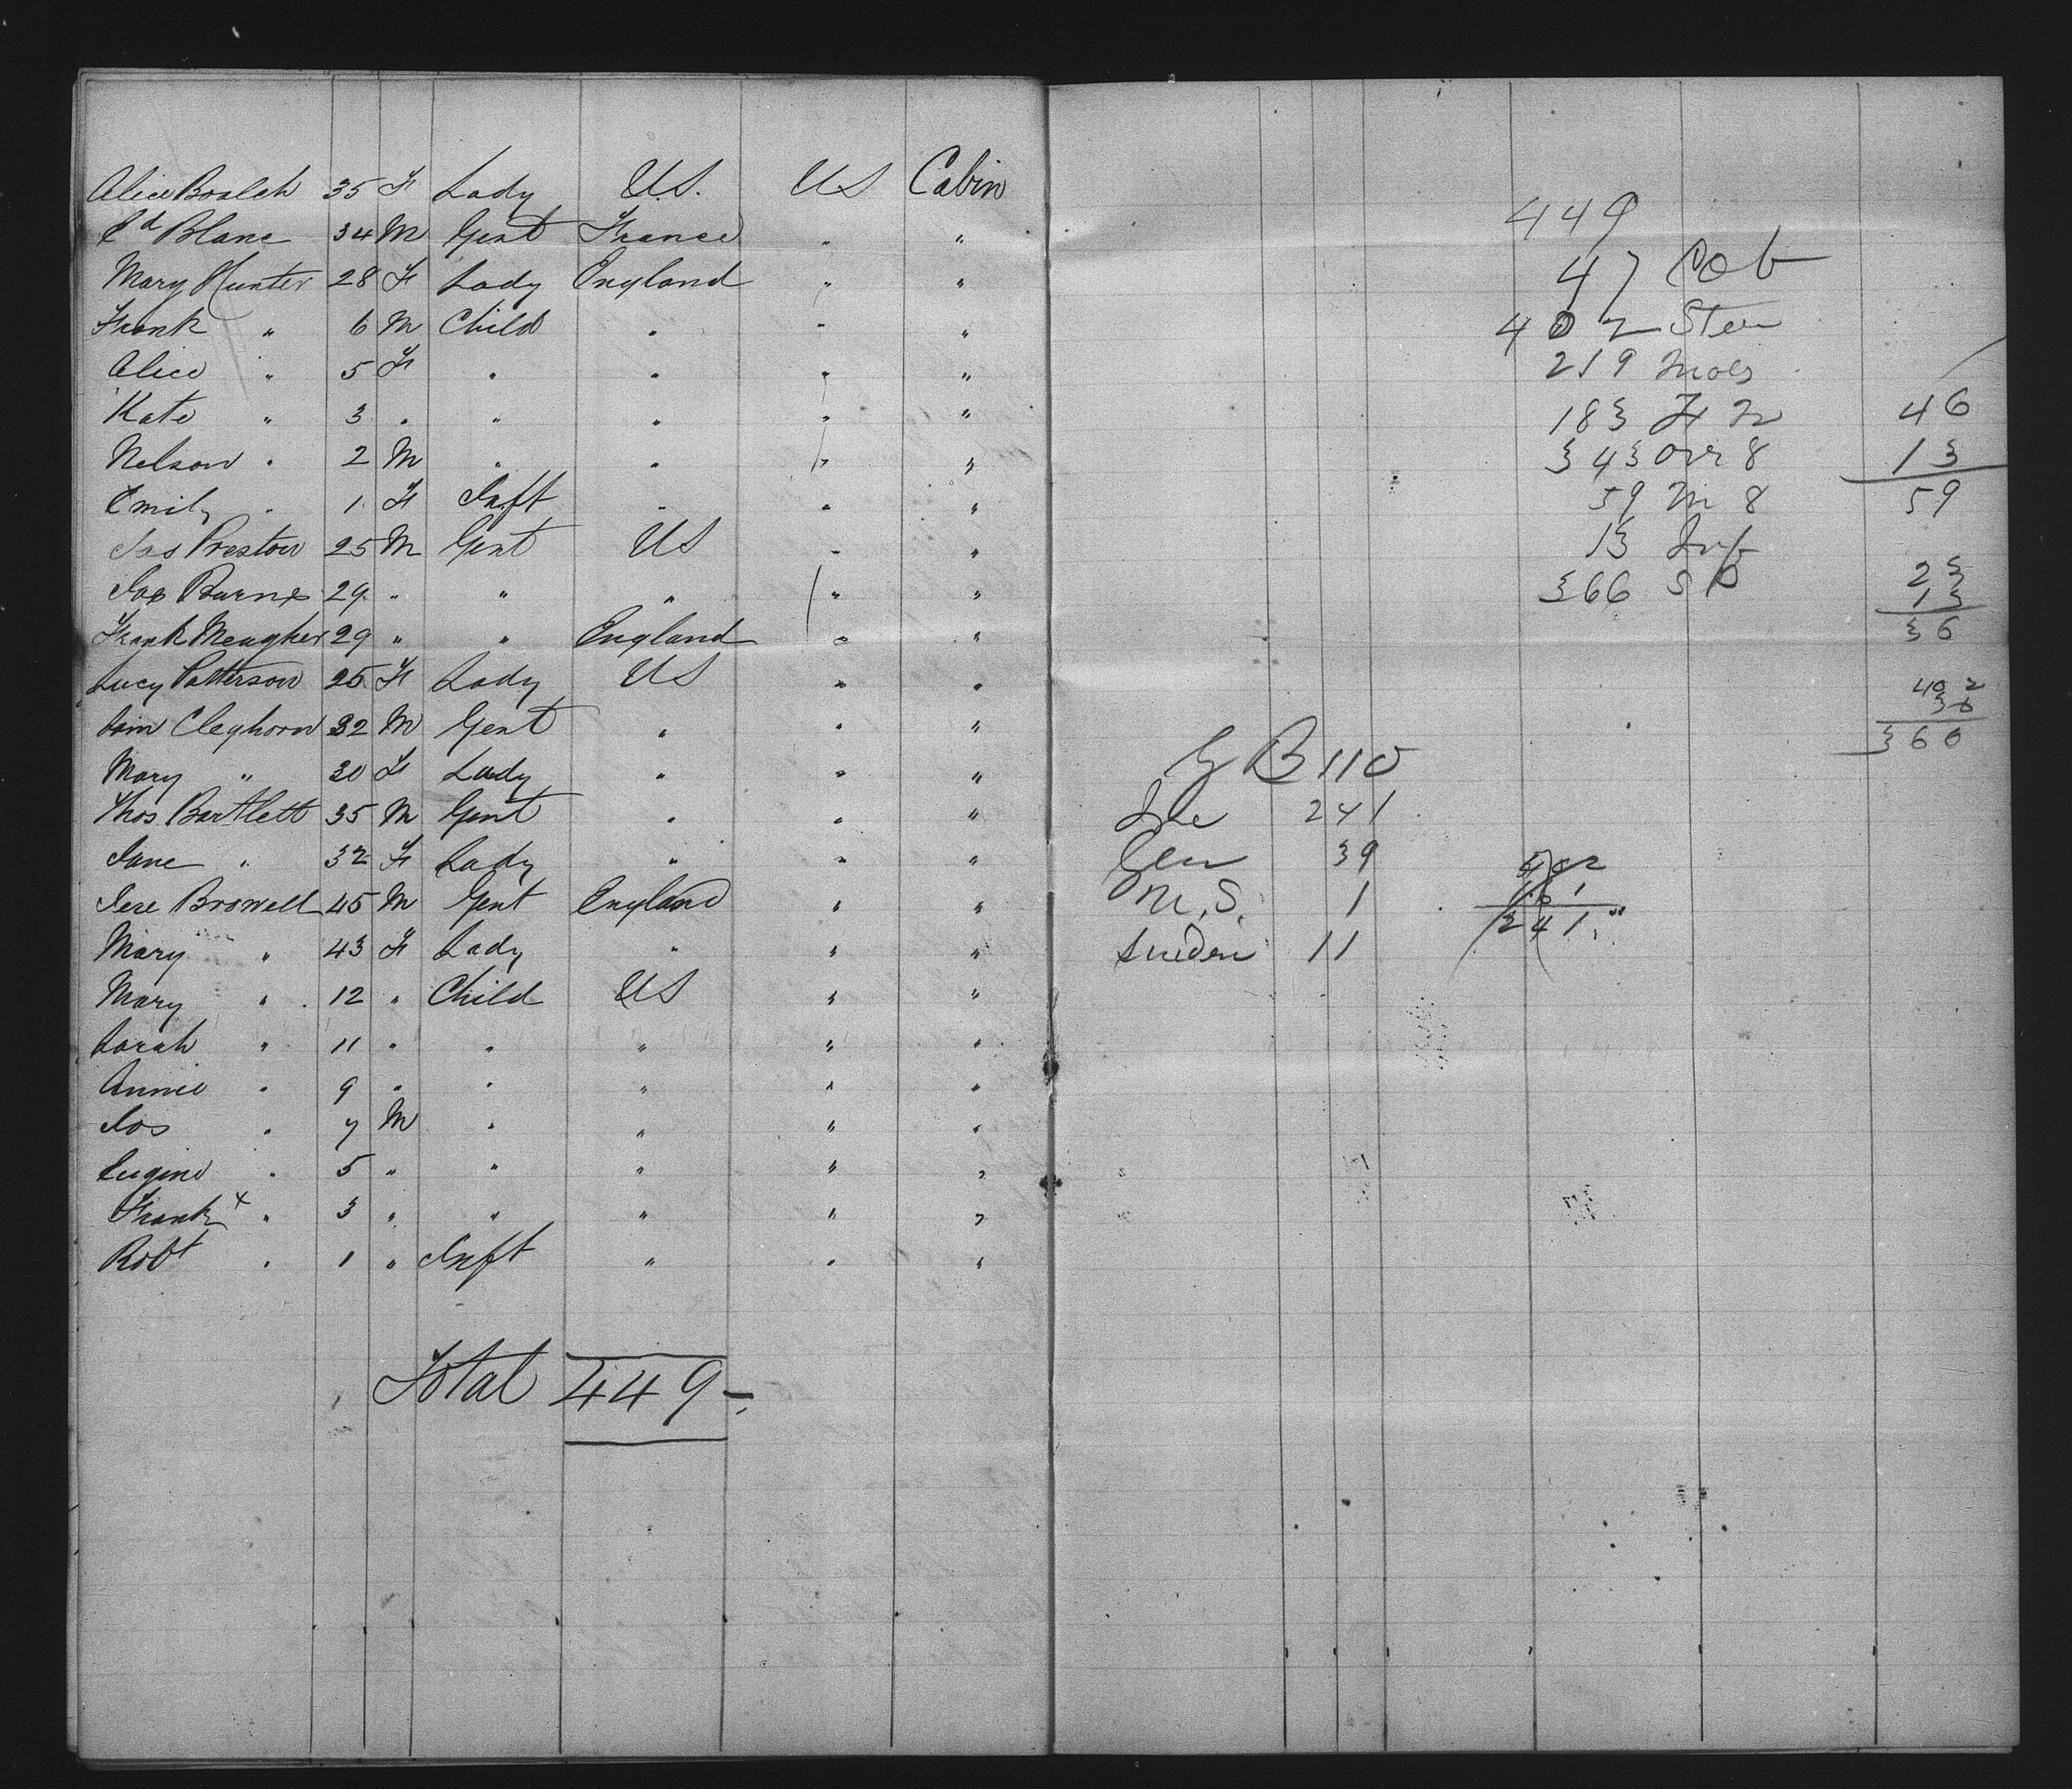 Alice Boalch 35 F Lady U.S. US Cabin
Ed Blanc 34 M Gent France " "
Mary Hunter 28 F Lady England " "
Frank " 6 M Child " " "
Alice " 5 F " " " "
Kate " 3 " " " " "
Nelson " 2 M " " " "
Emily " 1 F Inft " " "
Jas Preston 25 M Gent US " "
Jas Burns 29 " " " " "
Frank Meagher 29 " " England " "
Lucy Patterson 25 F Lady US " "
Sam Cleghorn 32 M Gent " " "
Mary " 30 F Lady " " "
Thos Bartlett 35 M Gent " " "
Jane " 32 F Lady " " "
Jere Browell 45 M Gent England " "
Mary " 43 F Lady " " "
Mary " 12 " Child US " "
Sarah " 11 " " " " "
Annie " 9 " " " " "
Jos " 7 M " " " "
Eugene " 5 " " " " "
Frank x " 3 " " " " "
Robt " 1 " Inft " " "
Total 449-
449
47 Cab
402 Stee
219 Mals
183 F M
343 ovr 8
59 in 8
13 Inf
366 S P
46
13
59
23
13
36
402
36
366
G B 110
Ire 241
Ger 39
U.S. 1
Sweden 11
161
241